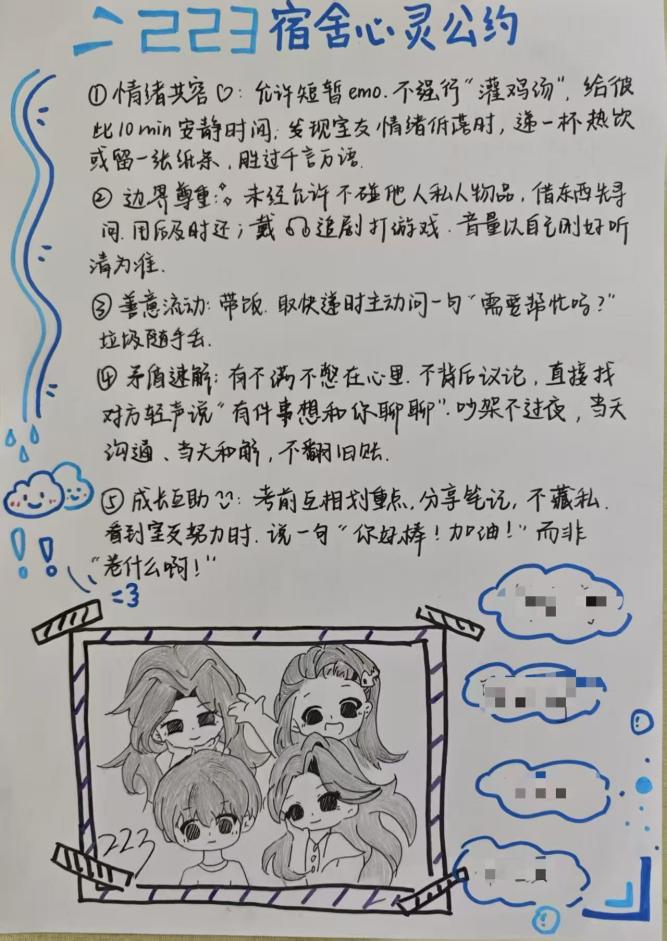 223宿舍心灵公约
① 情绪共容♡：允许短暂emo.不强行“灌鸡汤”，给彼
此10min安静时间；发现室友情绪低落时，递一杯热饮
或留一张纸条，胜过千言万语.
② 边界尊重：未经允许不碰他人私人物品，借东西先寻
问.用后及时还；戴🎧追剧打游戏.音量以自己刚好听
清为准.
③ 善意流动：带饭.取快递时主动问一句“需要帮忙吗？”
垃圾随手丢.
④ 矛盾速解：有不满不憋在心里.不背后议论，直接找
对方轻声说“有件事想和你聊聊”.吵架不过夜，当天
沟通、当天和解，不翻旧账.
⑤ 成长互助：考前互相划重点，分享笔记，不藏私.
看到室友努力时.说一句“你好棒！加油！”而非
“卷什么啊！”
223